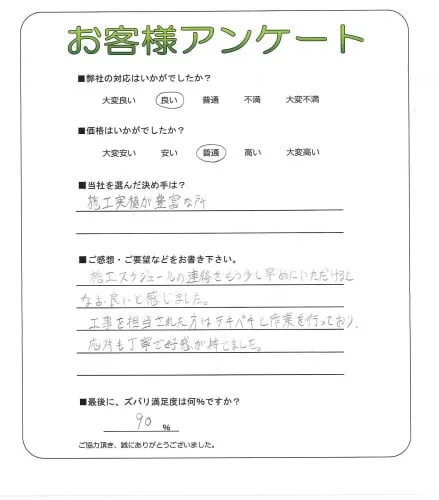 お客様アンケート
■弊社の対応はいかがでしたか?
大変良い 良い 普通 不満 大変不満
■価格はいかがでしたか?
大変安い 安い 普通 高い 大変高い
■当社を選んだ決め手は?
施工実積が豊富な所
■ご感想・ご要望などをお書き下さい。
施工スケジュールの連絡をもう少し早めにいただけると
なお、良いと感じました。
工事を担当された方はテキパキと作業を行っており、
応対も丁寧で好感が持てました。
■最後に、ズバリ満足度は何%ですか?
90 %
ご協力頂き、誠にありがとうございました。